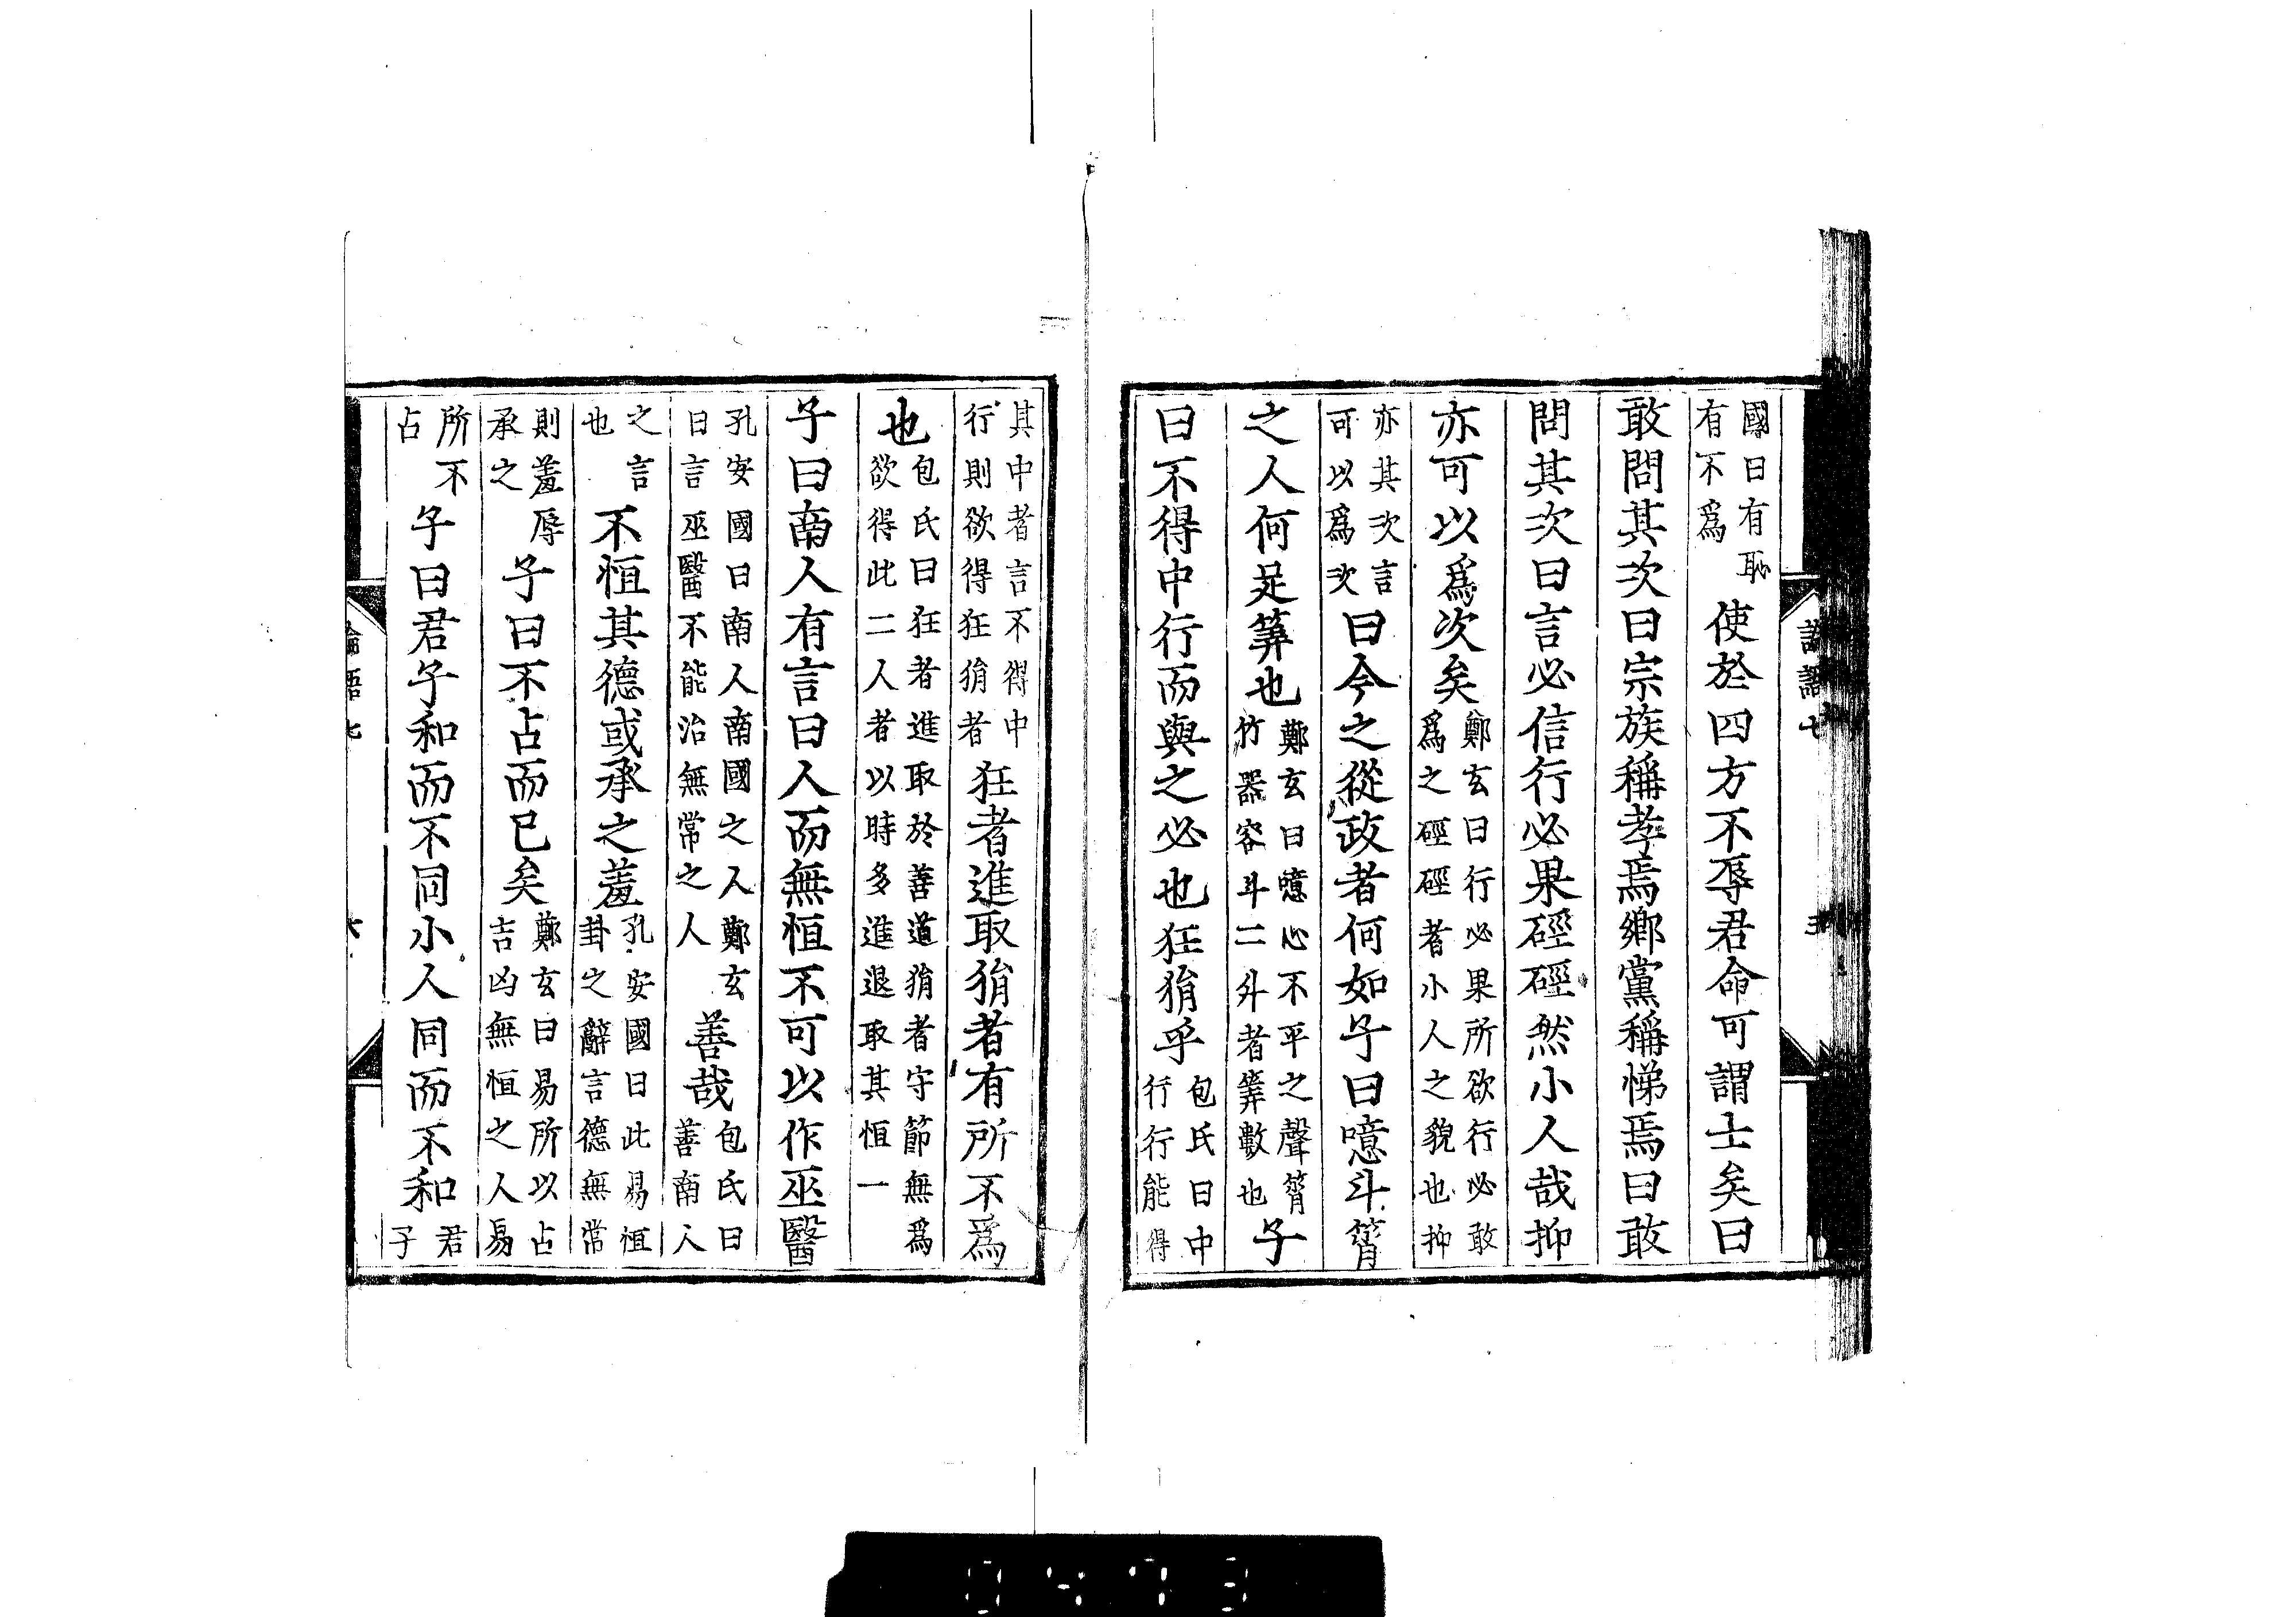 國曰有恥有不爲使於四方不辱君命可謂士矣曰
敢問其次曰宗族稱孝焉鄉黨稱悌焉曰敢
問其次曰言必信行必果硜硜然小人哉抑
亦可以爲次矣鄭玄曰行必果所欲行必敢爲之硜硜者小人之貌也抑
亦其次言可以爲次曰今之從政者何如子曰噫斗筲
之人何足筭也鄭玄曰噫心不平之聲筲竹器容斗二升者筭數也子
曰不得中行而與之必也狂狷乎包氏曰中行行能得
其中者言不得中行則欲得狂狷者狂者進取狷者有所不爲
也包氏曰狂者進取於善道狷者守節無爲欲得此二人者以時多進退取其恒一
子曰南人有言曰人而無恒不可以作巫醫
孔安國曰南人南國之人鄭玄曰言巫醫不能治無常之人善哉包氏曰善南人
之言也不恒其德或承之羞孔安國曰此易恒卦之辭言德無常
則羞辱承之子曰不占而已矣鄭玄曰易所以占吉凶無恒之人易
所不占子曰君子和而不同小人同而不和君子
論語七